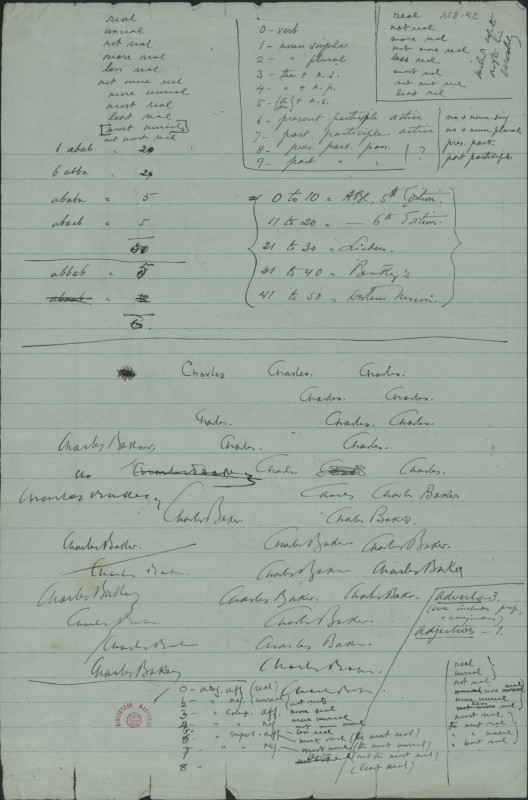 real
unreal
not real
more real
less real
not more real
more unreal
most real
least real
[most unreal]
not most real
0 - verb
1 - noun singular
2 - " plural
3 - the + n.s.
4 - " + n.p.
5 - + n.s.
6 - present participle active
7 - past participle active
8 - pres. part. pass.
9 - past " "
?
no + noun sing
no + noun plural
pres. part.
past participle
real
not real
more real
not more real
less real
most real
not most real
least real
128-92
6 abab " 20
6 abba " 20
ababa = 5
abaab = 5
50
abbab = 5
0 to 10 = ABC, 5th Edition.
11 to 20 = — 6th Edition.
21 to 30 = Liebers
31 to 40 = Bentley's
41 to 50 = Western Union.
Charles Charles. Charles.
Charles. Charles.
Charles. Charles. Charles.
Charles Baker Charles. Charles.
Cha Charles Baker Charles Charles.
Charles Baker Charles Charles Baker
Charles Baker. Charles Baker.
Charles Baker. Charles Baker Charles Baker.
Charles Baker Charles Baker Charles Baker
Charles Baker Charles Baker. Charles Baker.
Charles Baker. Charles Baker.
Charles Baker Charles Baker.
Charles Baker Charles Baker.
Charles Baker.
adverbs - 3.
adjectives - 1.
0 - adj. aff. (real)
1 - " neg. (unreal)
(not real)
2
3 - " comp. aff. more real
more unreal
4 - " " neg. not more real
5 less real
6 " superl. aff. most real (the most real)
7 " " neg. most unreal (the most unreal)
(not the most real)
8 - (least real)
real
unreal
not real
more unreal
most real
the most real
" " unreal
" least real
BIBLIOTECA NACIONAL